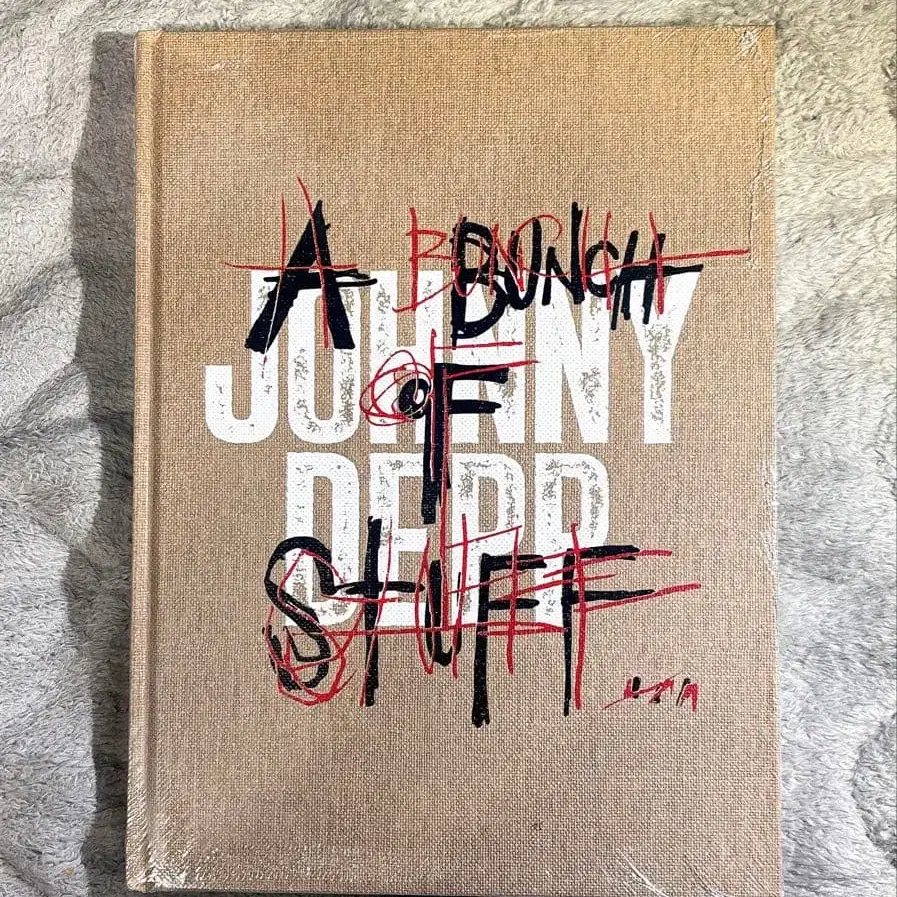 A BUNCH
JOHNNY
OF
DEPP
STUFF